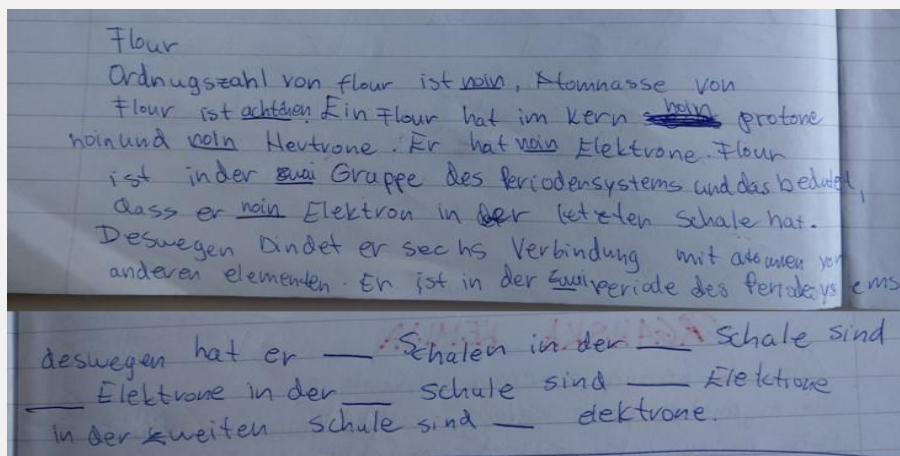 Flour
Ordnugszahl von flour ist noin, Atomnasse von
Flour ist achtzhen Ein Flour hat im Kern noin protone
noin und noin Neutrone. Er hat noin Elektrone. Flour
ist in der zwai Gruppe des Periodensystems und das bedutet,
dass er noin Elektron in der letzten Schale hat.
Deswegen bindet er sechs Verbindung mit atomen von
anderen elementen. Er ist in der zwai periode des Periodesystems
deswegen hat er ___ Schalen in der ___ Schale sind
___ Elektrone in der ___ schule sind ___ Elektrone
in der zweiten schule sind ___ elektrone.